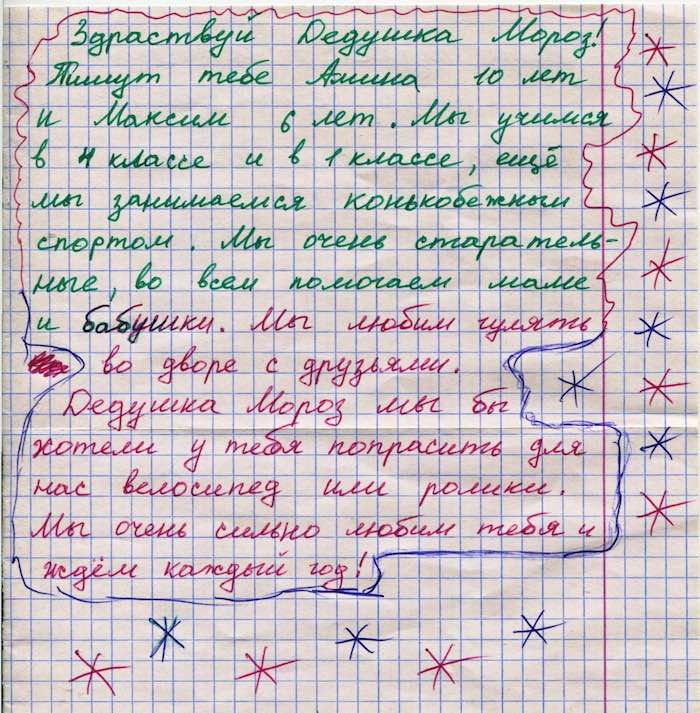 Здраствуй Дедушка Мороз!
Пишут тебе Амина 10 лет
и Максим 6 лет. Мы учимся
в 4 классе и в 1 классе, ещё
мы занимаемся конькобежным
спортом. Мы очень старатель-
ные, во всем помогаем маме
и бабушки. Мы любим гулять
во дворе с друзьями.
Дедушка Мороз мы бы
хотели у тебя попрасить для
нас велосипед или ролики.
Мы очень сильно любим тебя и
ждём каждый год!